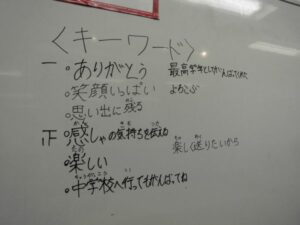 〈キーワード〉
一・ありがとう 最高学年としてがんばってくれた
・笑顔いっぱい よろこぶ
・思い出に残る
正・感しゃの気持ちを伝える
・楽しい 楽しく送りたいから
・中学校へ行ってもがんばってね